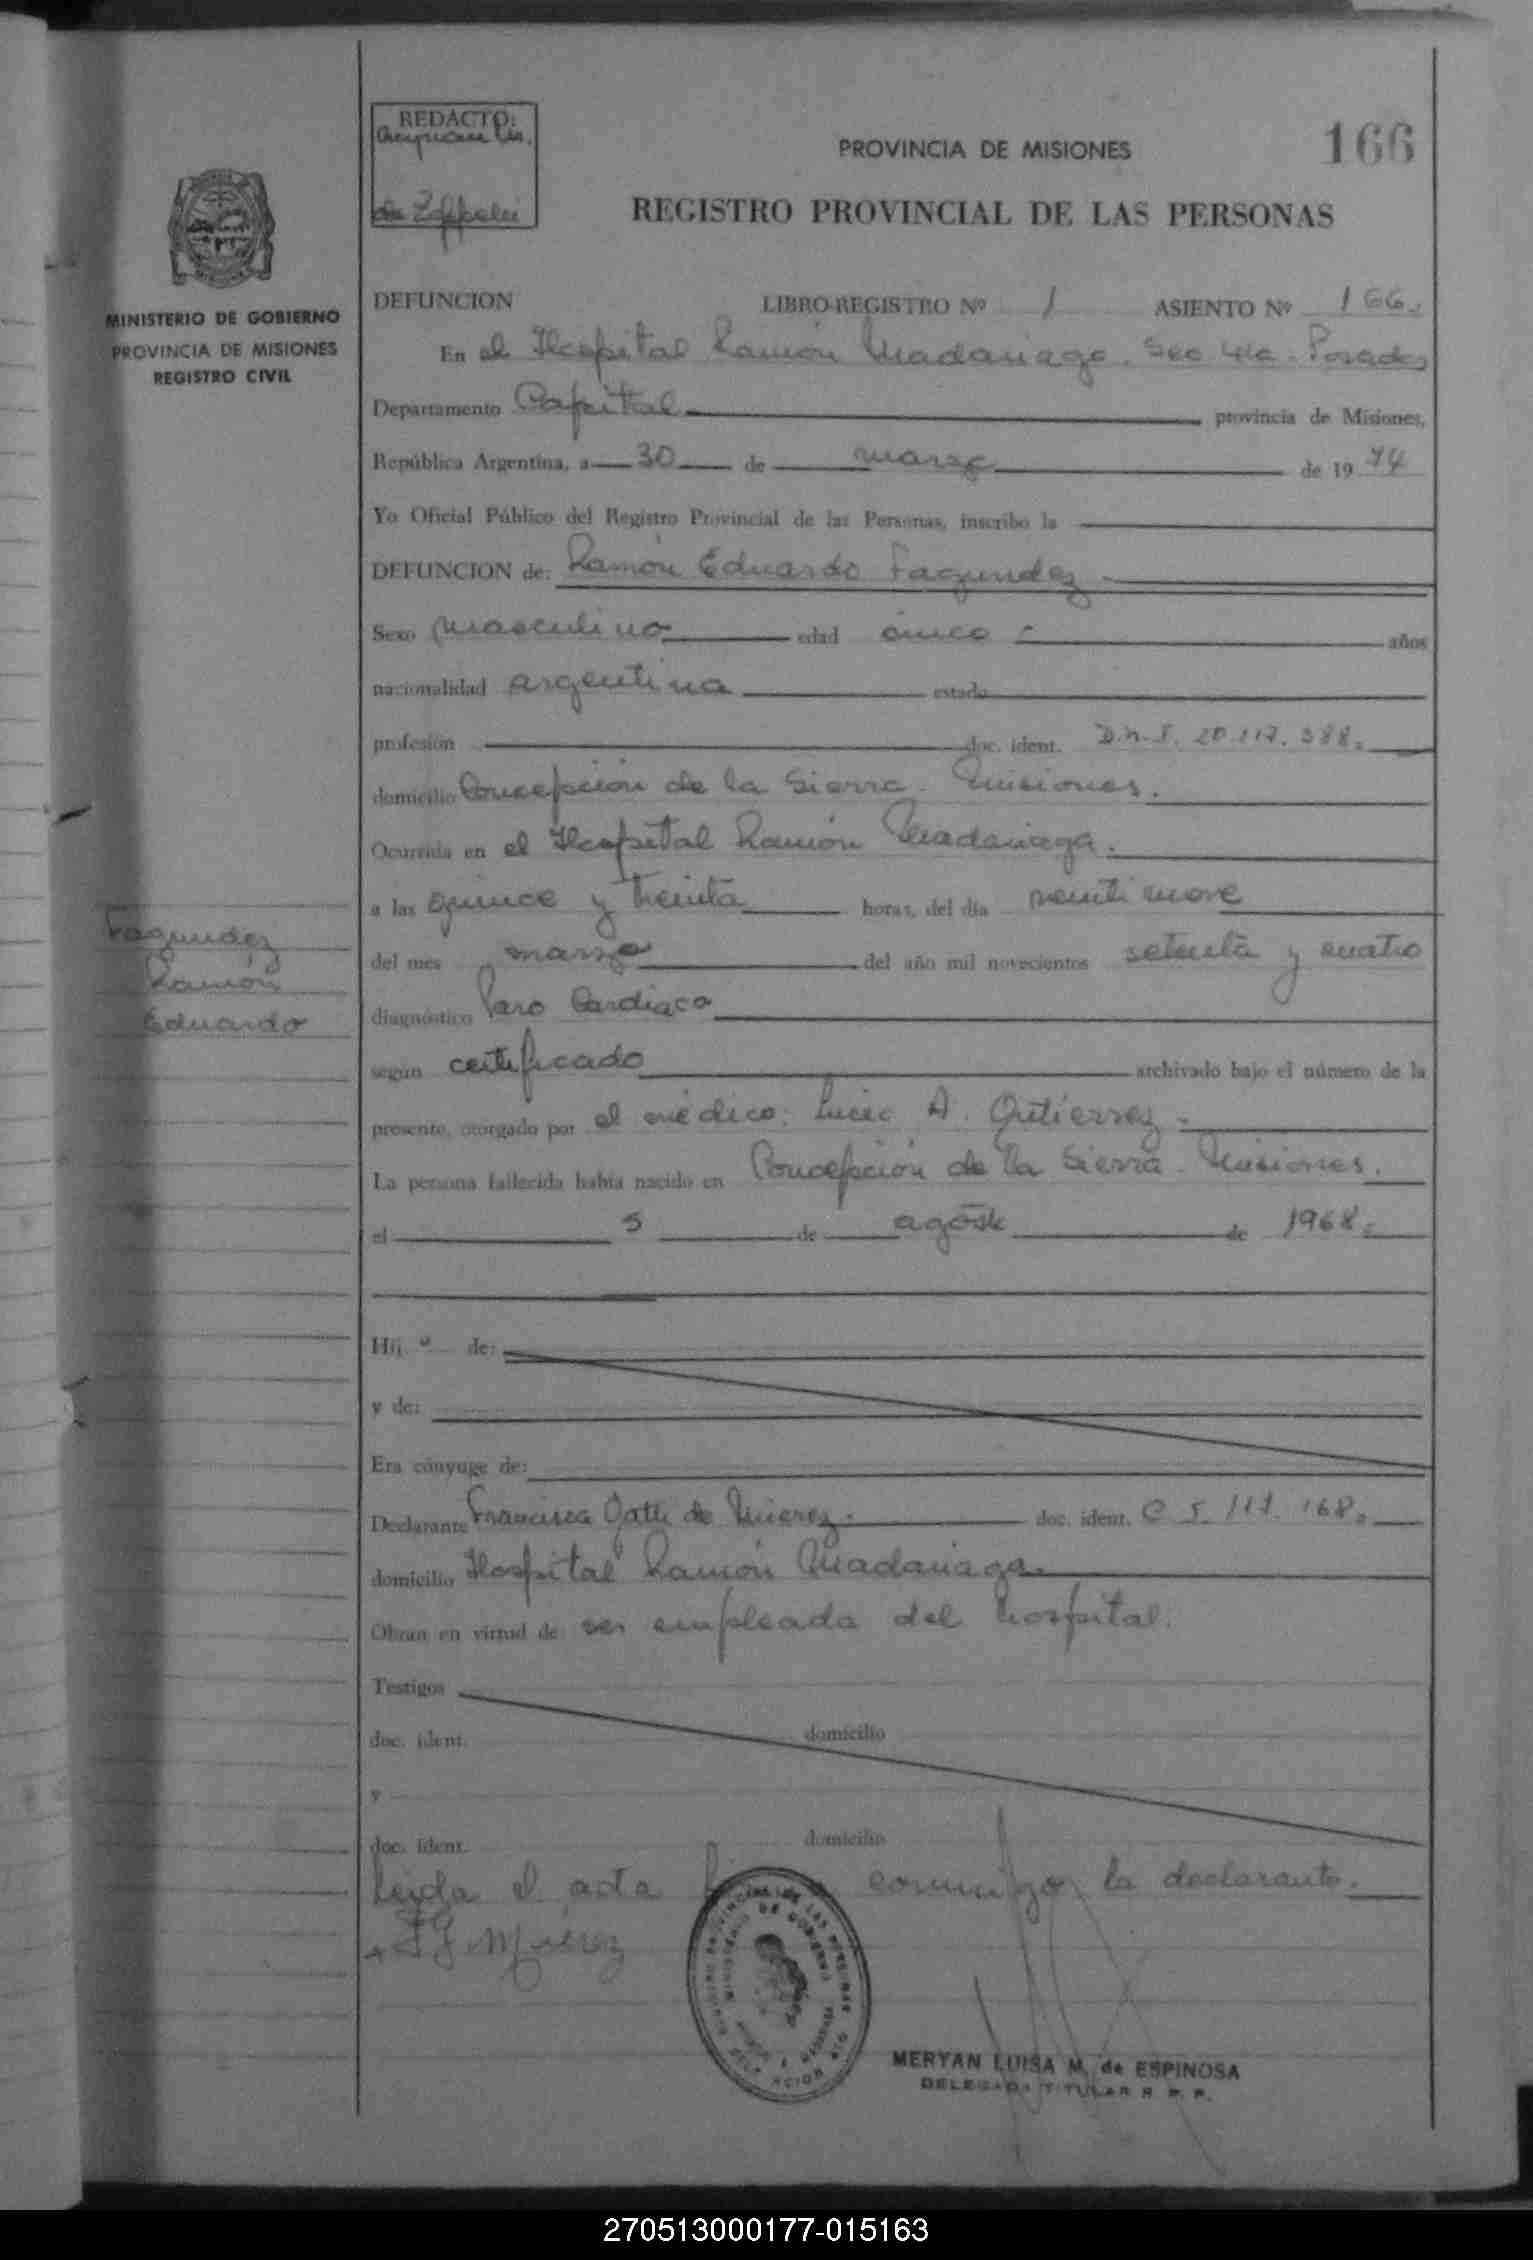 REDACTO:
de Zoppelli
PROVINCIA DE MISIONES
166
REGISTRO PROVINCIAL DE LAS PERSONAS
MINISTERIO DE GOBIERNO
PROVINCIA DE MISIONES
REGISTRO CIVIL
DEFUNCION LIBRO-REGISTRO Nº 1 ASIENTO Nº 166.
En el Hospital Ramón Madariaga. Sec 4ta. Posadas
Departamento Capital provincia de Misiones,
República Argentina, a 30 de marzo de 1974
Yo Oficial Público del Registro Provincial de las Personas, inscribo la
DEFUNCION de: Ramón Eduardo Fagundez.
Sexo masculino edad cinco años
nacionalidad argentina estado
profesión doc. ident. D.N.I. 20.117.388.
domicilio Concepción de la Sierra. Misiones.
Ocurrida en el Hospital Ramón Madariaga.
a las quince y treinta horas, del día veintinueve
del mes marzo del año mil novecientos setenta y cuatro
diagnóstico Paro Cardiaco
según certificado archivado bajo el número de la
presente, otorgado por el médico: A. Gutierrez.
La persona fallecida había nacido en Concepción de la Sierra. Misiones.
el 5 de agosto de 1968.
Fagundez
Ramón
Eduardo
Hij o de:
y de:
Era cónyuge de:
Declarante Francisca de Mierez. doc. ident. C.I. 117.168.
domicilio Hospital Ramón Madariaga.
Obran en virtud de: ser empleada del hospital.
Testigos
doc. ident. domicilio
y
doc. ident. domicilio
Leida el acta conmigo la declarante.
F G. Mierez
MERYAN LUISA M. de ESPINOSA
DELEGADA TITULAR R. P. P.
270513000177-015163